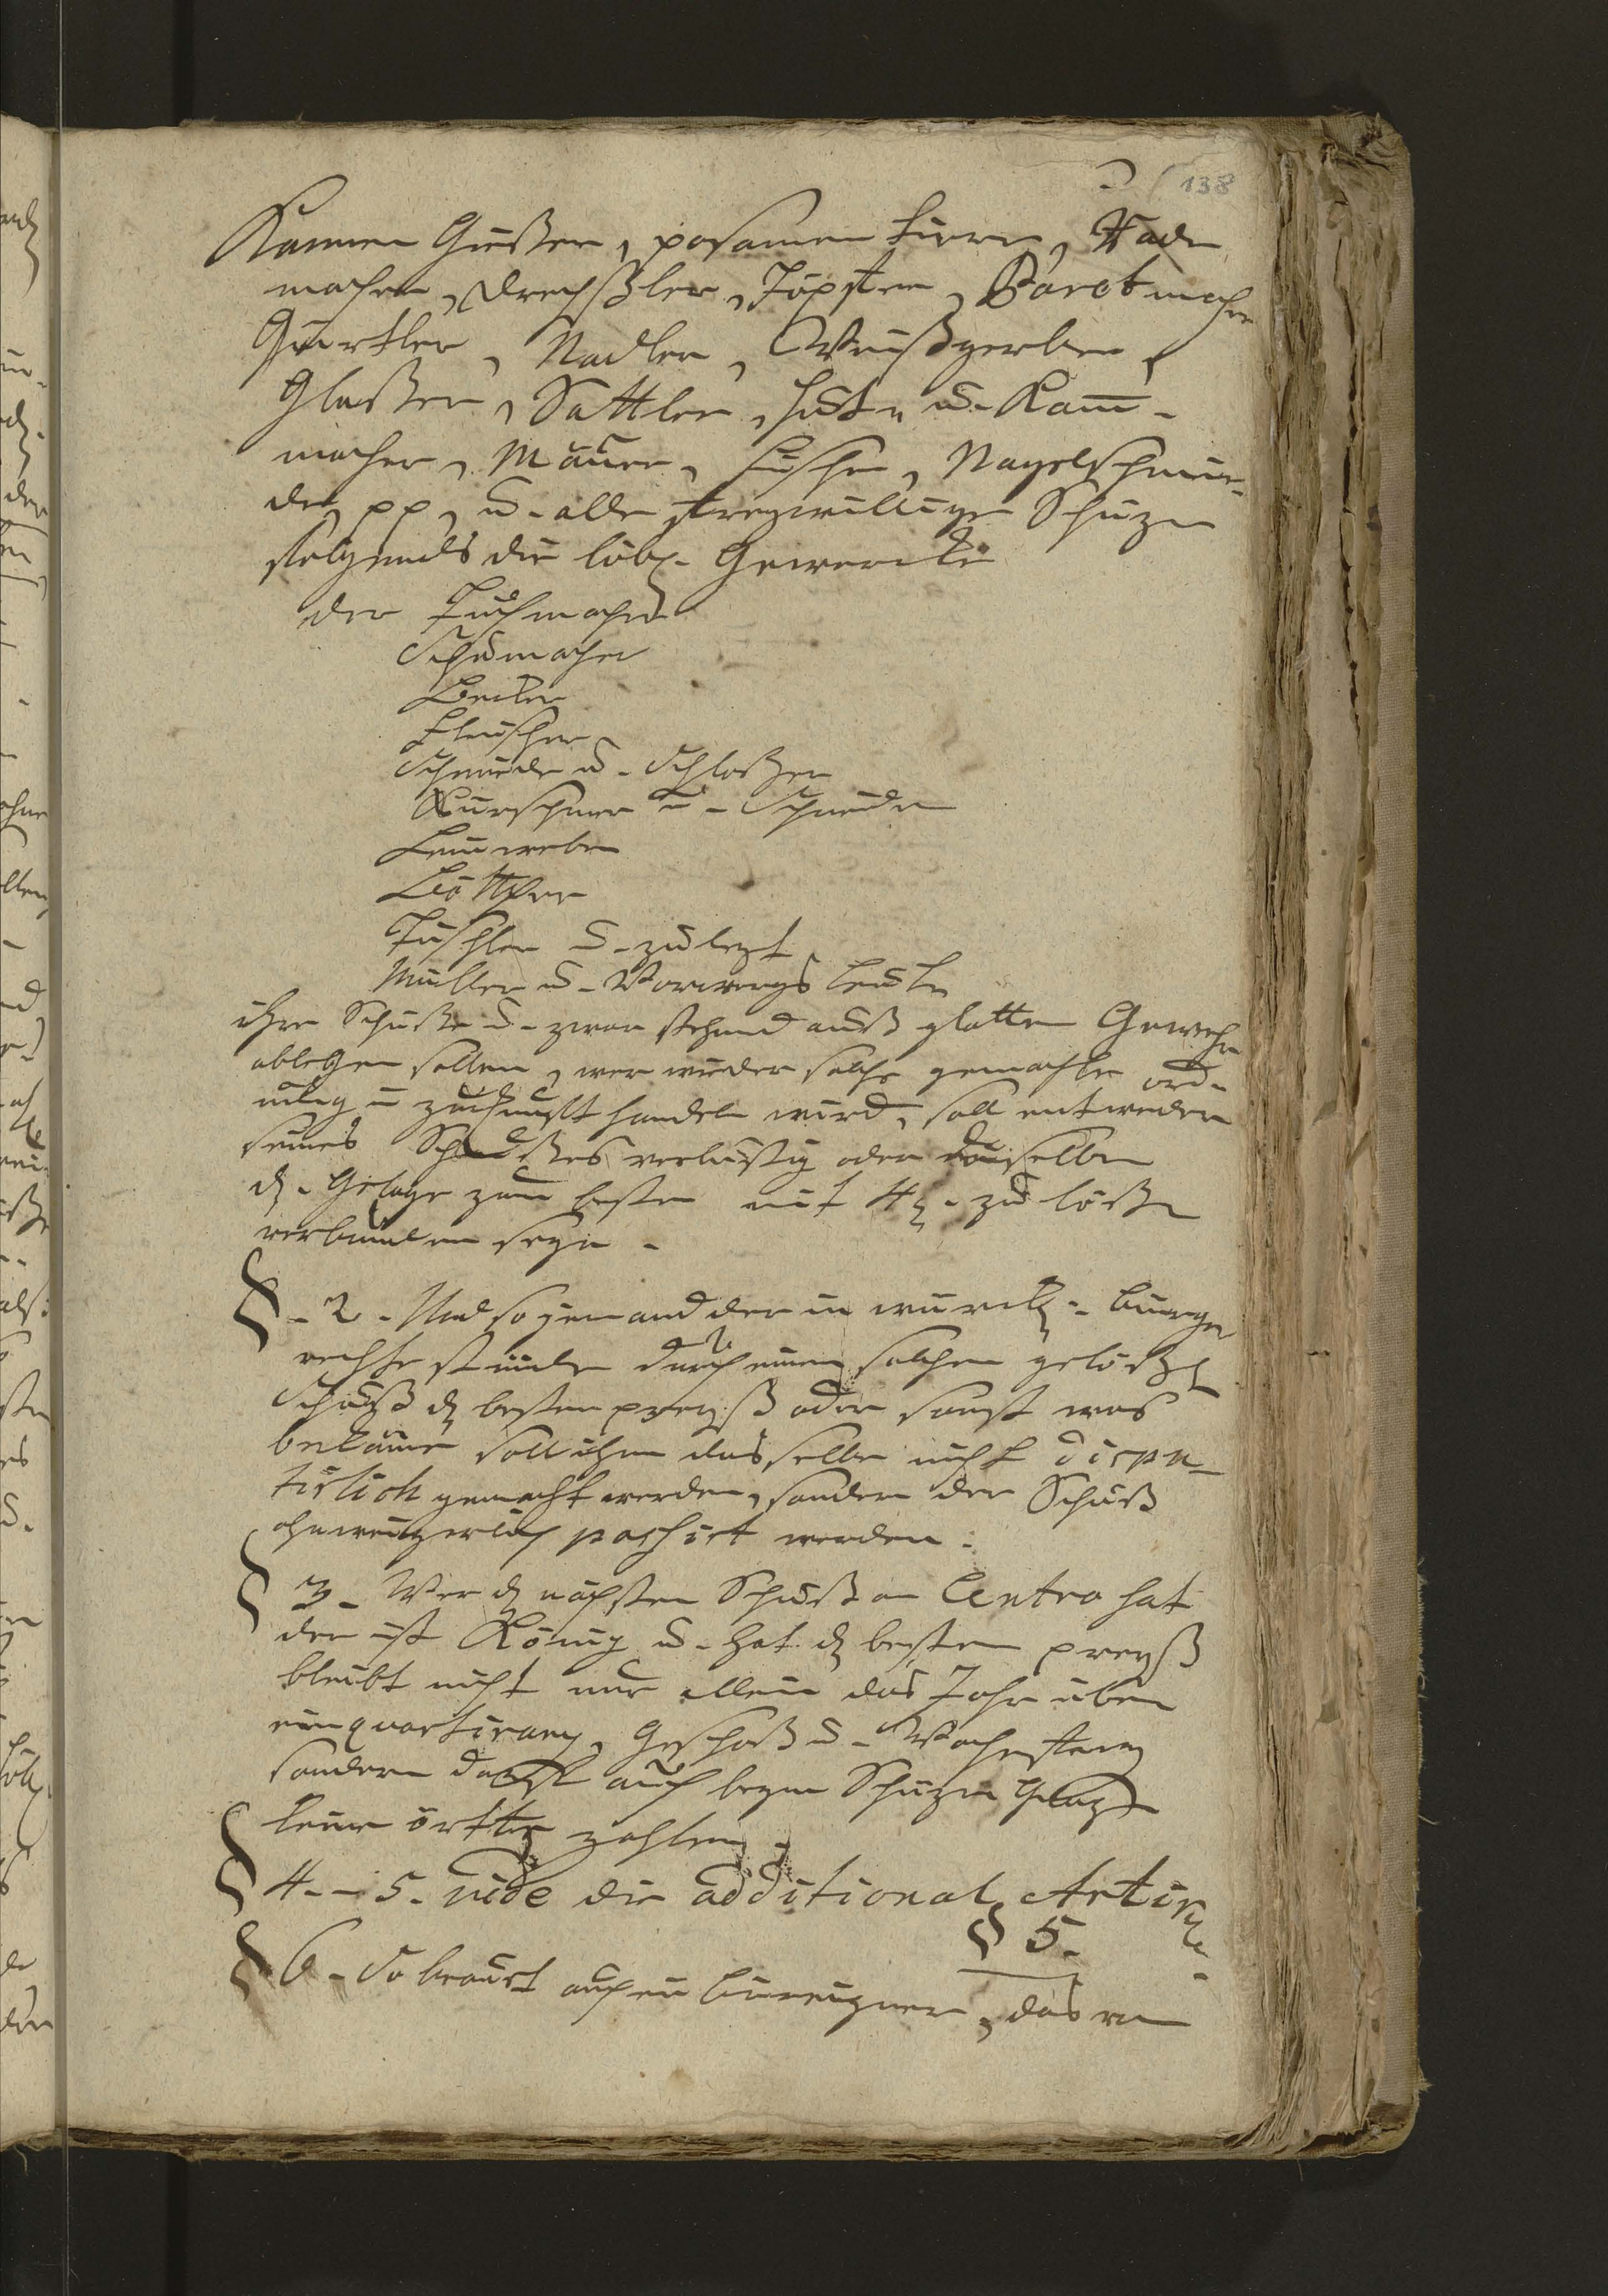 138
Kannen Gießer, posamen tirer, Rade
macher, Drechßler, Töpffer, Baretmacher
Gürtler, Nadler, Weißgerber,
Glaßer, Sattler, Hut- u. Kam-
macher, Maurer, Fischer, Nagelschmie-
de, pp, u. alle freywillige Schüzen
folgends die löbl. Gewercke
der Tuchmacher
Schumacher
Becker
Fleischer
Schmiede u. Schloßer
Kürschner u. Schneider
Leinweber
Böttger
Tischler u. zulezt
Müller u. Vorwergs Leute
ihre Schüße u. zwar stehend auß glatten Gewehr
ablegen sollen, wer wieder solche gemachte ord-
nung in zukunfft handeln wird, soll entweder
seines Schußes verlustig oder denselben
d. Gelage zum besten mit 4 zu lößen
verbunden seyn.
§. 2. Und so jemand der in würckl. bürger
rechte stünde durch einen solchen gelößten
Schuß den besten preyß oder sonst was
bekäme soll ihm dasselbe nicht dispu-
tirlich gemacht werden, sondern der Schuß
ohnweigerlich passirt werden.
§ 3. Wer den nächsten Schuß am Centro hat
der ist König u. hat den besten preyß
bleibt nicht nur allein das Jahr über
einquartirung, Geschoß u. Wache frey
sondern darff auch beym Schüzen
keine zahlen.
§ 4. - 5. vide die additional Articul
§ 5.
§ 6. So auch ein, das